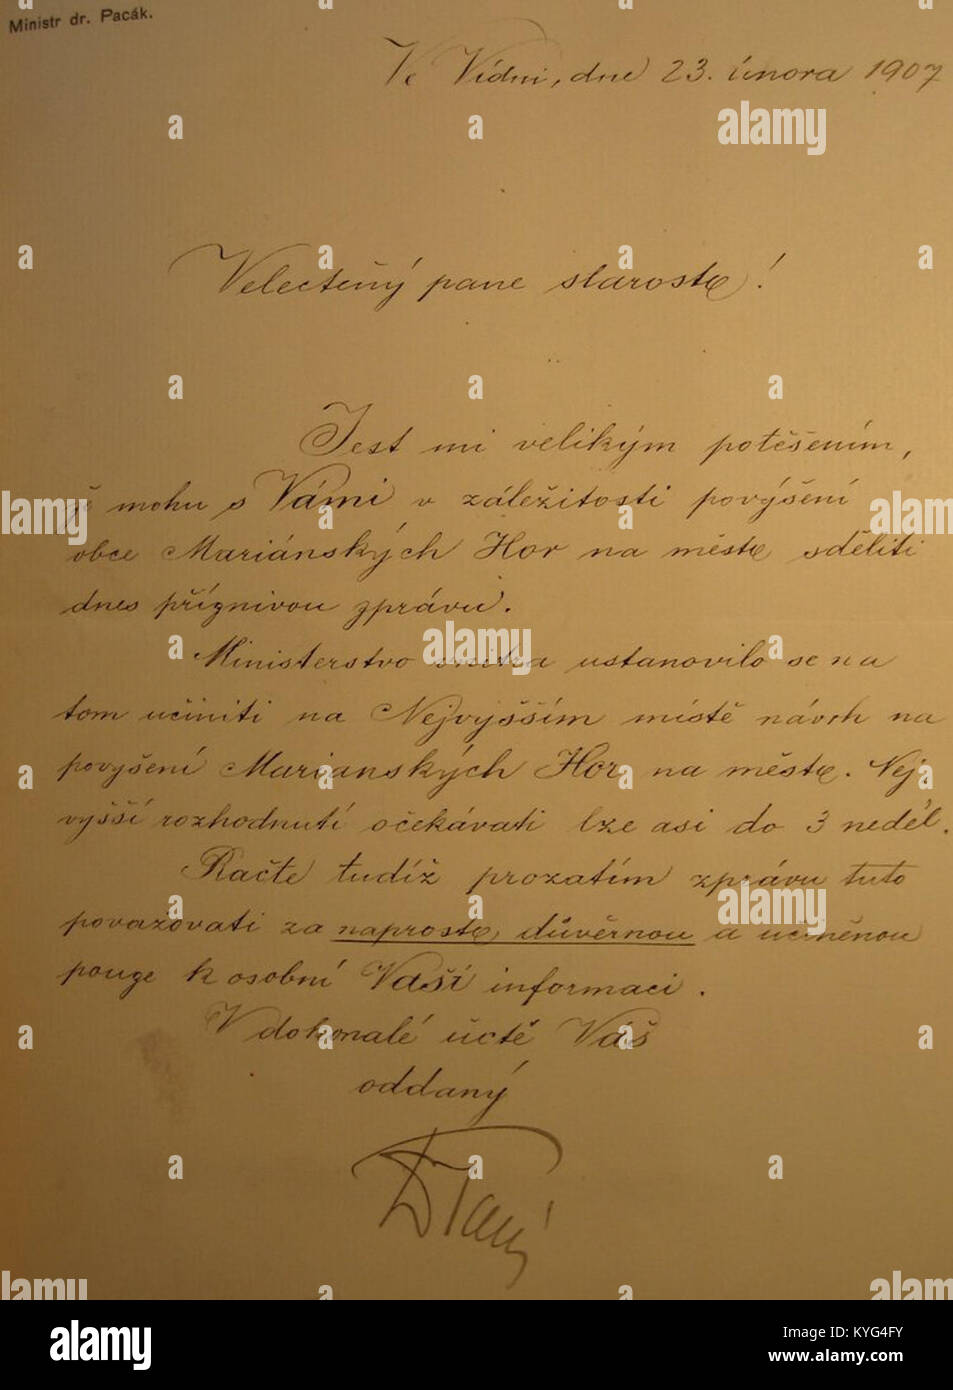 Ministr dr. Pacák.
Ve Vídni, dne 23. února 1907
Velectěný pane starosto!
Jest mi velikým potěšením,
ji mohu s Vámi v záležitosti povýšení
obce Mariánských Hor na město sděliti
dnes příznivou zprávu.
Ministerstvo vnitra ustanovilo se na
tom učiniti na Nejvyšším místě návrh na
povyšení Marianských Hor na město. Nej-
vyšší rozhodnutí očekávati lze asi do 3 neděl.
Račte tudíž prozatím zprávu tuto
považovati za naprosto důvěrnou a učiněnou
pouze k osobní Vaší informaci.
V dokonalé úctě Váš
oddaný
alamy
Image ID: KYG4FY
www.alamy.com